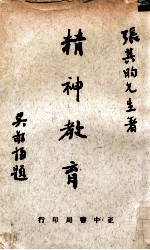 張其昀先生著
精神教育
吳敬恆題
正中書局印行